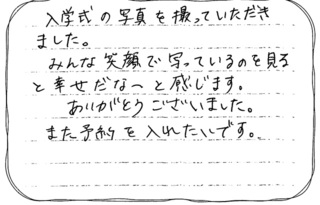 入学式の写真を撮っていただき
ました。
みんな笑顔で写っているのを見る
と幸せだなーと感じます。
ありがとうございました。
また予約を入れたいです。